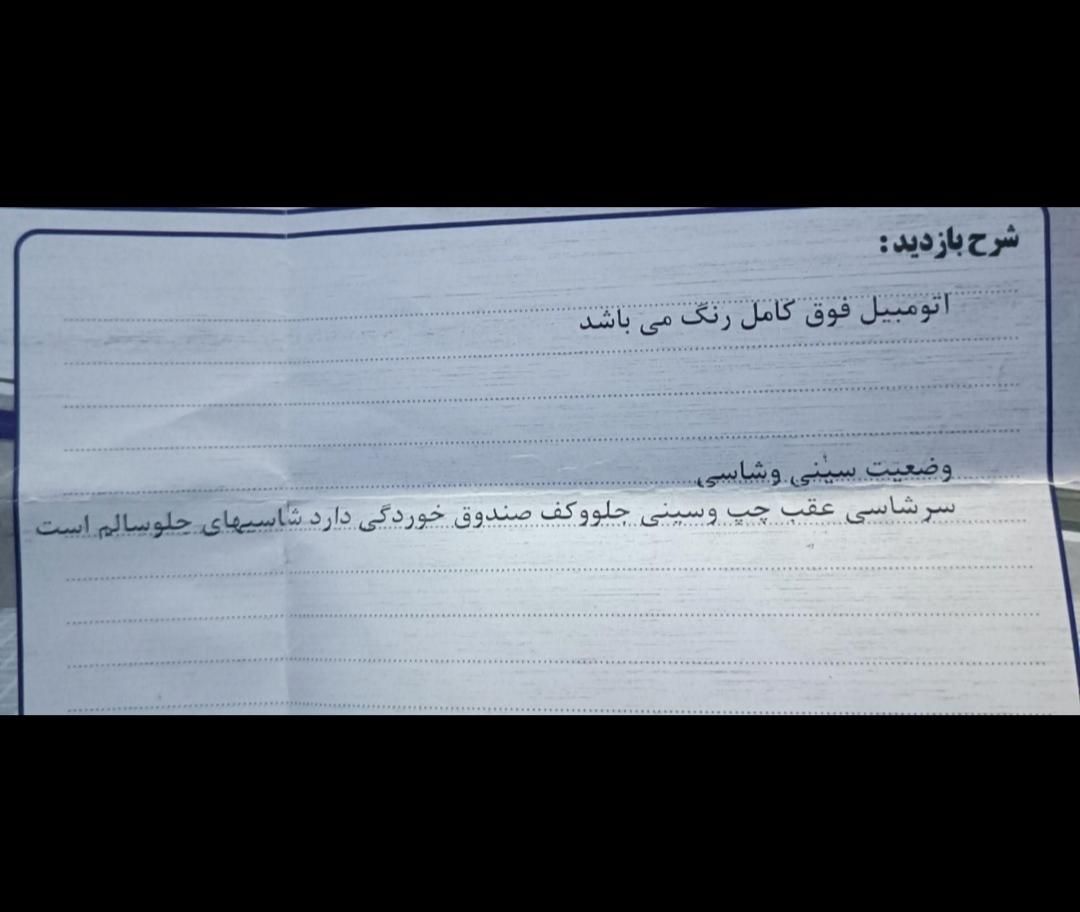 شرح بازدید:
اتومبیل فوق کامل رنگ می باشد
وضعیت سینی وشاسی
سرشاسی عقب چپ وسینی جلووکف صندوق خوردگی دارد شاسیهای جلوسالم است